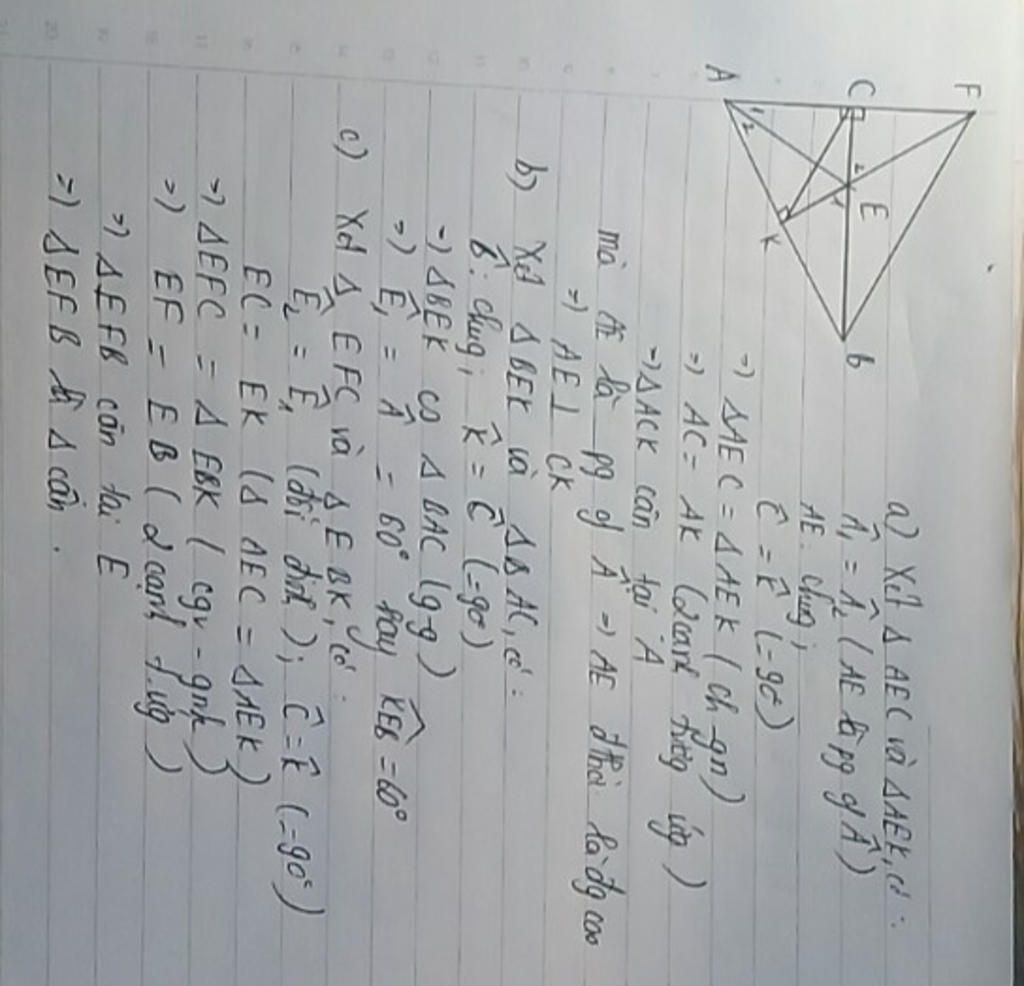 F
C
A
E
K
B
1
2
2
1
a) Xét Δ AEC và ΔAEK, có:
Â₁ = Â₂ (AE là pg of Â)
AE: chung;
Ĉ = K̂ (=90°)
=) ΔAEC = ΔAEK (ch-gn)
=) AC = AK (2 cạnh tương ứng)
=) ΔACK cân tại A
mà AE là pg of Â =) AE đthời là đg cao
=) AE ⊥ CK
b) Xét Δ BEK và Δ BAC, có:
B̂: chung; K̂ = Ĉ (=90)
=) ΔBEK ∽ Δ BAC (g-g)
=) Ê₁ = Â = 60° hay K̂EB = 60°
c) Xét Δ EFC và Δ EBK, có:
Ê₂ = Ê₁ (đối đỉnh); Ĉ = K̂ (=90°)
EC = EK (Δ AEC = ΔAEK)
=) ΔEFC = Δ EBK (cgv-gnk)
=) EF = EB (2 cạnh t.ứng)
=) ΔEFB cân tại E
=) ΔEFB là Δ cân.